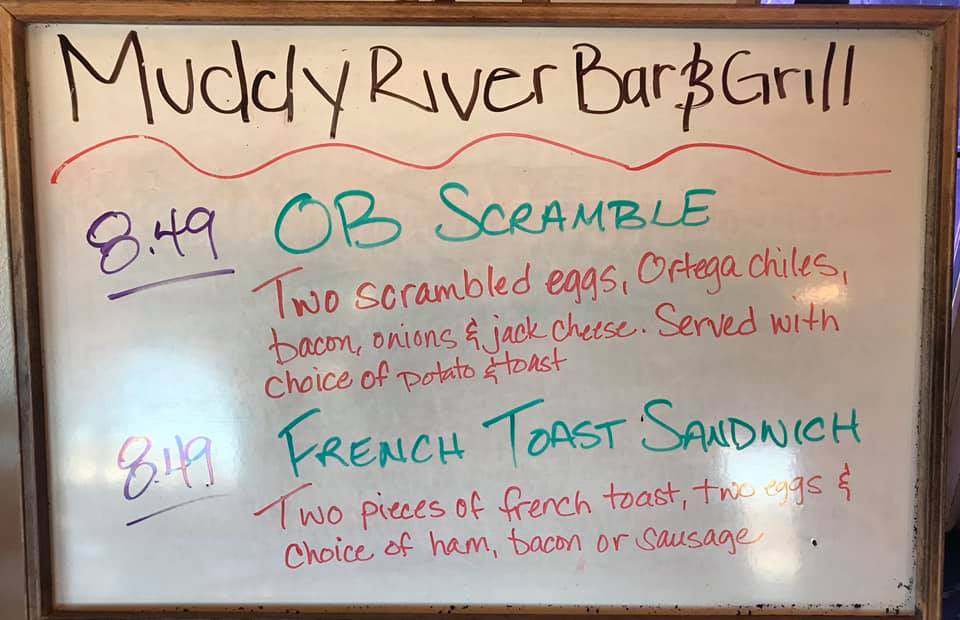 Muddy River Bar & Grill
8.49 OB SCRAMBLE
Two scrambled eggs, Ortega chiles,
bacon, onions & jack cheese. Served with
choice of potato & toast
8.49 FRENCH TOAST SANDWICH
Two pieces of french toast, two eggs &
choice of ham, bacon or sausage